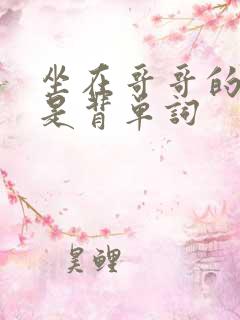 坐在哥哥的
是背单词
昊鲤